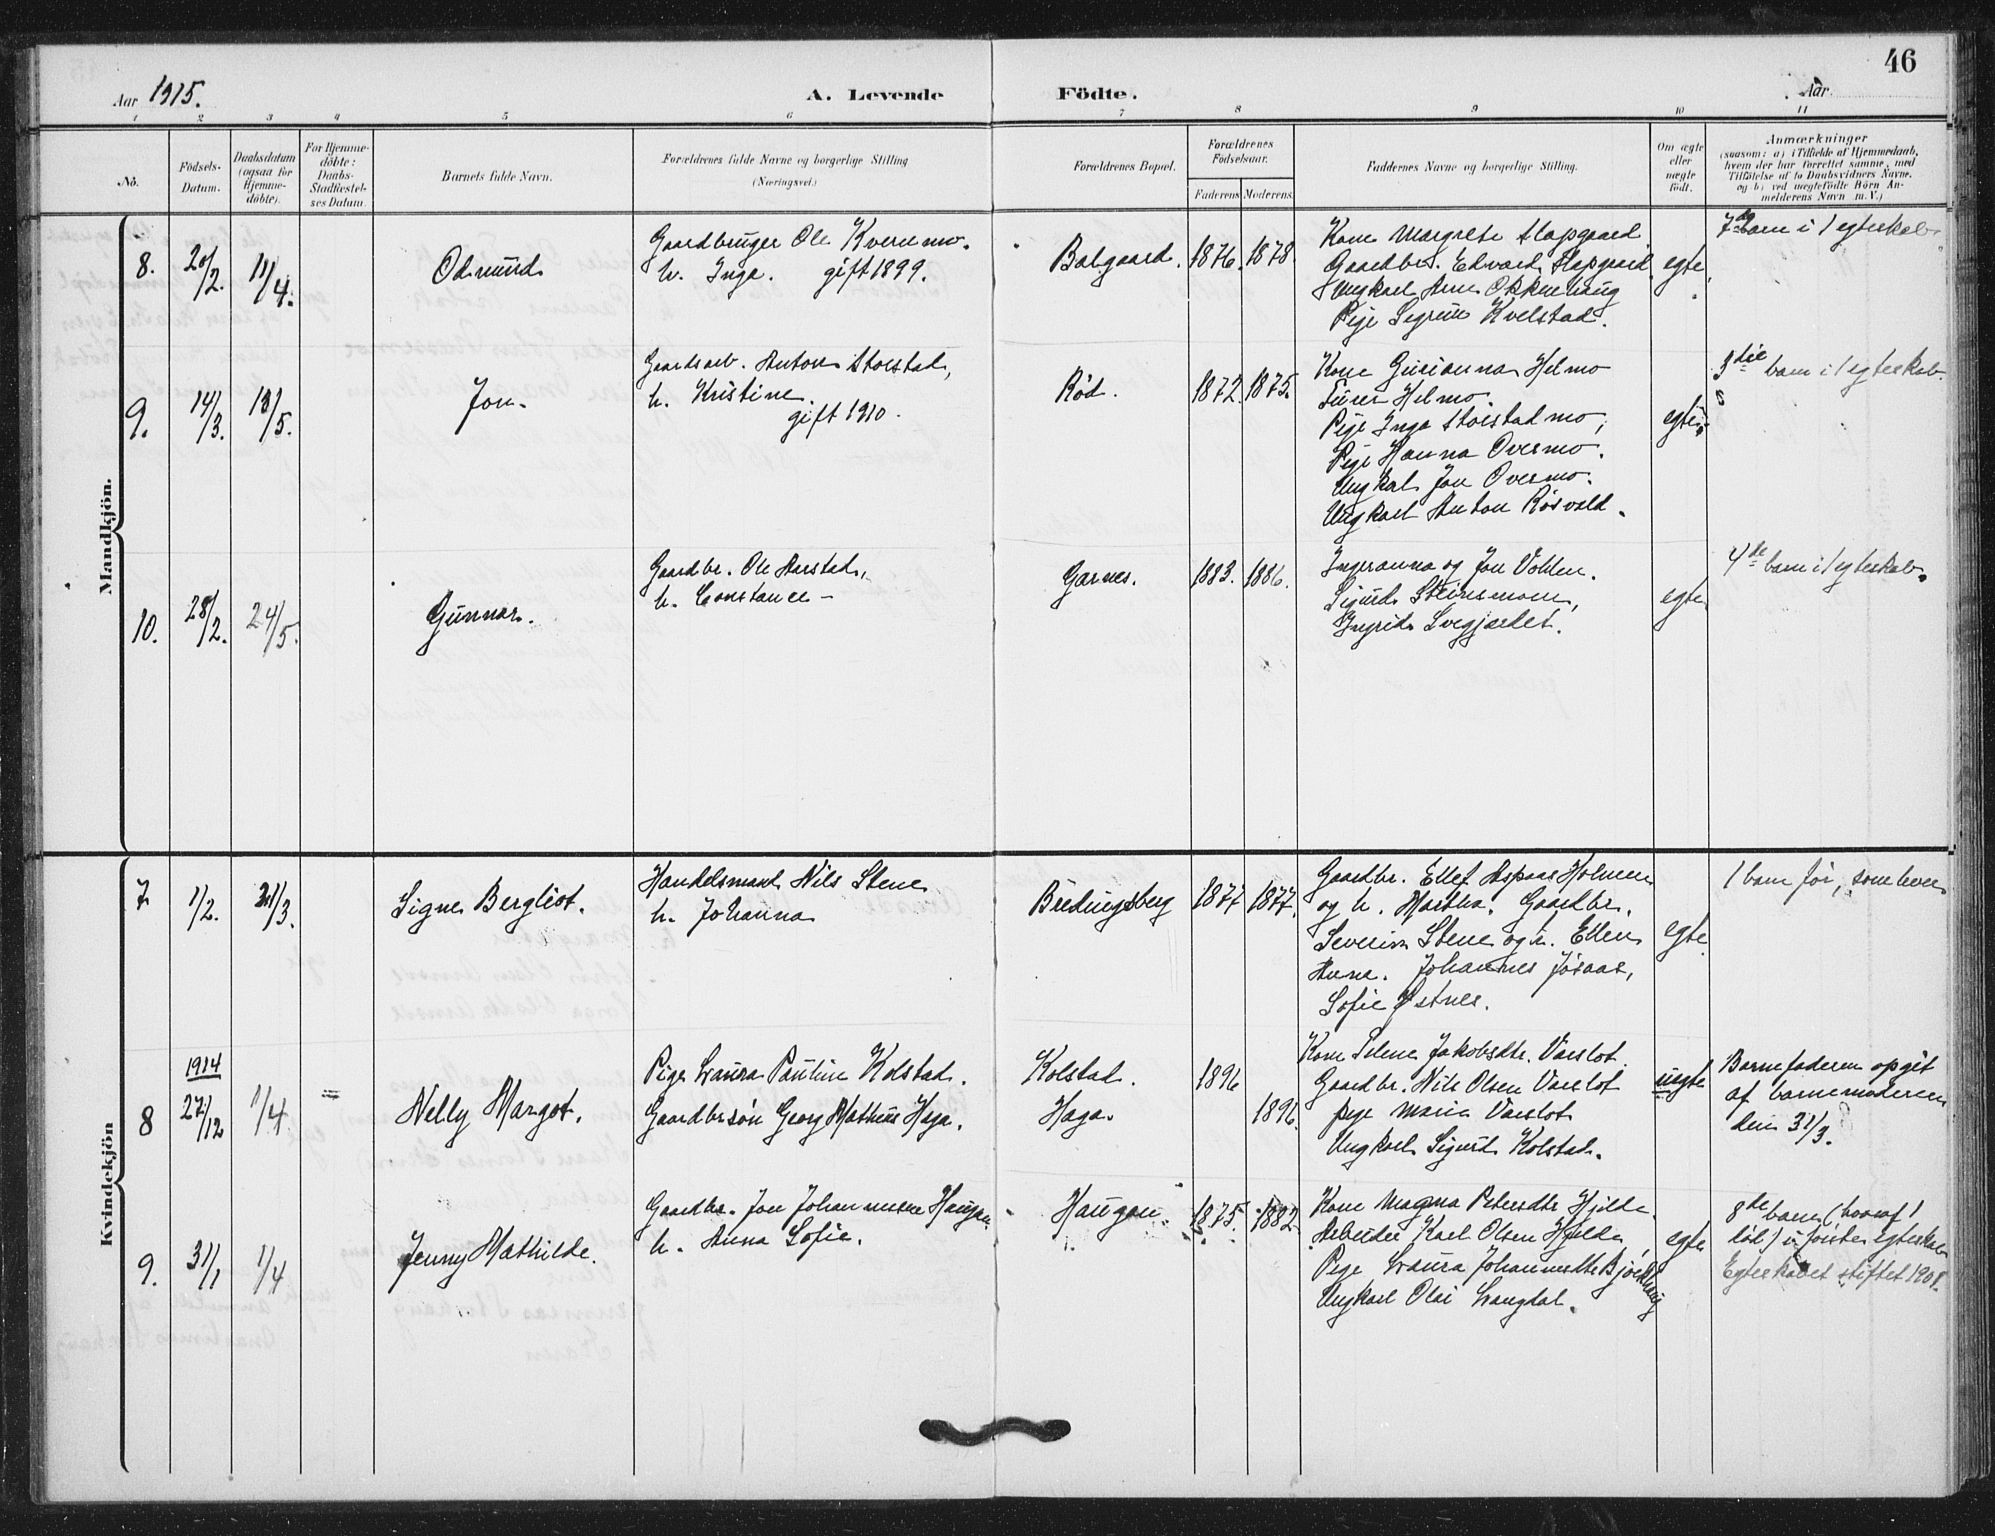 46
Aar 1915.
A. Levende
Födte.
Aar
1 2 3 4 5 6 7 8 9 10 11
No.
Födsels-
Datum.
Daabsdatum
(ogsaa for
Hjemme-
döbte).
For Hjemme-
döbte:
Daabs-
Stadfæstel-
ses Datum.
Barnets fulde Navn.
Forældrenes fulde Navne og borgerlige Stilling
(Næringsvei.)
Forældrenes Bopæl.
Forældrenes
Födselsaar.
Faderens Moderens
Faddernes Navne og borgerlige Stilling.
Om ægte
eller
uægte
födt.
Anmærkninger
(saasom: a) i Tilfælde af Hjemmedaab,
hvem der har forrettet samme, med
Tilföielse af to Daabsvidners Navne,
og b) ved uægtefödte Börn An-
melderens Navn m. V.)
Mandkjön.
8.
20/2.
11/4.
Odmund
Gaardbruger Ole Kvernmo.
h. Inga. gift 1899.
Balgaard.
1876. 1878.
Kone Margrete Slapgaard
Gaardbr. Edvard Slapgaard
Ungkarl Arne Okkenhaug
Pige Sigrun Kvelstad.
egte
7de barn i 1 egteskab.
9.
14/3.
13/5.
Jon.
Gaardsarb. Anton Storstad,
h. Kristine.
gift 1910.
Rød.
1872. 1875.
Kone Gurianna Helmo
Helmo.
Pige Inga Storstadmo,
Pige Hanna Overmo.
Ungkarl Jon Overmo.
Ungkarl Anton Røsvold.
egte.
3die barn i 1 egteskab.
10.
28/2.
24/5.
Gunnar.
Gaardbr. Ole Aarstad,
h. Constance –
Garnes.
1883. 1886.
Ingeranna og Jon Vohlen.
Sigurd Steinsmoen,
Ingrid Svegjardet.
egte
4de barn i 1 egteskab.
Kvindekjön
7
1/2.
21/3.
Signe Bergliot.
Handelsmand Nils Stene
h. Johanna
Bredingsberg
1877 1877.
Gaardbr. Ellef Aspaas Holmen
og h. Martha. Gaardbr.
Severin Stene og h. Ellen
Anna. Johannes Jøraas,
Sofie Østnes.
egte
1 barn før, som lever
8
1914
27/12
1/4
=
Nelly Margot.
Pige Laura Pauline Kolstad.
Gaardbrsøn Georg Mathius Haga.
Kolstad.
Haga.
1896
1896.
Kone Jakobsdtr. Varslot.
Gaardbr. Nils Olsen Varslot
pige Marie Varslot
Ungkarl Sigurd Kolstad.
uegte
Barnefaderen opgit
af barnemoderen
den 31/3.
9.
31/1
1/4
Jenny Mathilde.
Gaardbr. Jon Johannesen Haugan
h. Anna Sofie.
Haugan.
1875. 1882
Kone Magna Petersdtr Hjelde.
Arbeider Karl Olsen Hjelde,
Pige Laura Johannesdtr Bjørkhaug
Ungkarl Olai Langdal.
egte
8de barn (hvoraf 1
død) i første egteskab
Egteskabet stiftet 1901.